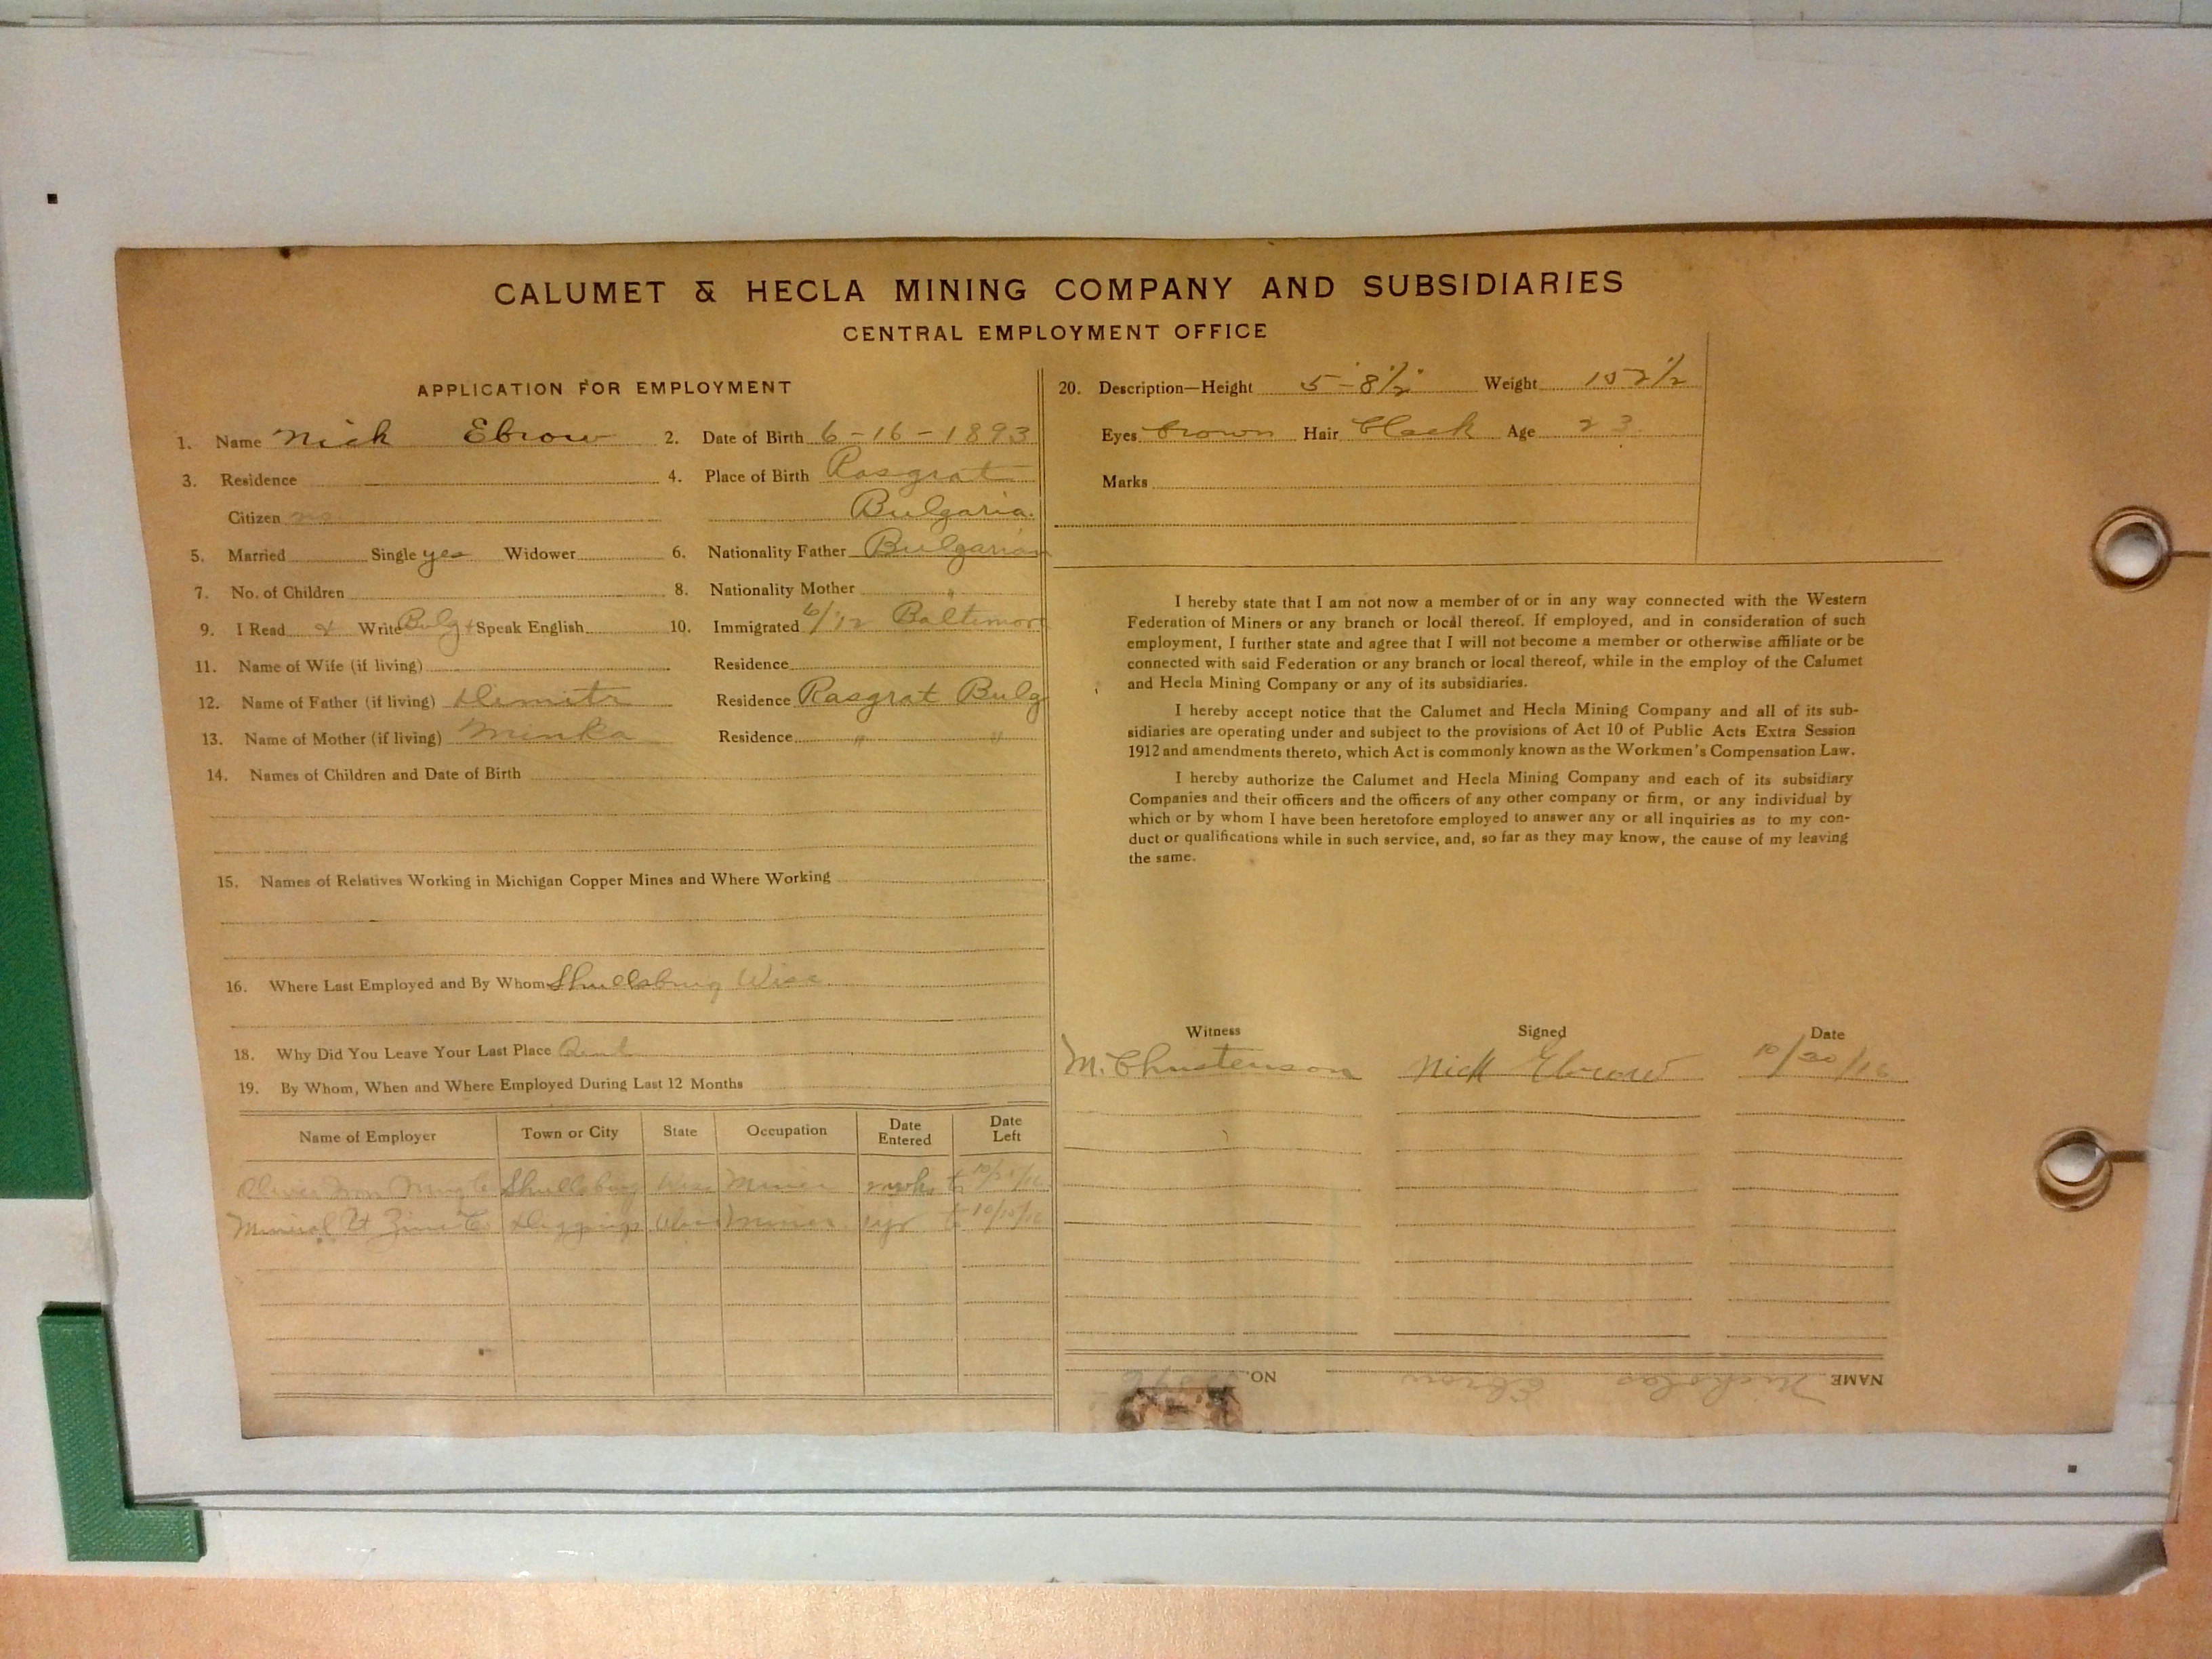 CALUMET & HECLA MINING COMPANY AND SUBSIDIARIES
CENTRAL EMPLOYMENT OFFICE
APPLICATION FOR EMPLOYMENT
1. Name Nick Ebrow 2. Date of Birth 6-16-1893
3. Residence 4. Place of Birth Rasgrat
Citizen no Bulgaria.
5. Married Single yes Widower 6. Nationality Father Bulgarian
7. No. of Children 8. Nationality Mother "
9. I Read & Write Bulg + Speak English 10. Immigrated 6/12 Baltimore
11. Name of Wife (if living) Residence
12. Name of Father (if living) Dimitr Residence Rasgrat Bulg
13. Name of Mother (if living) Minka Residence " "
14. Names of Children and Date of Birth
15. Names of Relatives Working in Michigan Copper Mines and Where Working
16. Where Last Employed and By Whom Shullsburg Wisc
18. Why Did You Leave Your Last Place Quit
19. By Whom, When and Where Employed During Last 12 Months
Name of Employer Town or City State Occupation Date Entered Date Left
Shullsburg Wisc Miner to
Mineral Pt Zinc Co Diggings Wisc Miner 1 yr to 10/10/16
20. Description—Height 5'-8½" Weight 152½
Eyes brown Hair Black Age 23
Marks
I hereby state that I am not now a member of or in any way connected with the Western
Federation of Miners or any branch or local thereof. If employed, and in consideration of such
employment, I further state and agree that I will not become a member or otherwise affiliate or be
connected with said Federation or any branch or local thereof, while in the employ of the Calumet
and Hecla Mining Company or any of its subsidiaries.
I hereby accept notice that the Calumet and Hecla Mining Company and all of its sub-
sidiaries are operating under and subject to the provisions of Act 10 of Public Acts Extra Session
1912 and amendments thereto, which Act is commonly known as the Workmen's Compensation Law.
I hereby authorize the Calumet and Hecla Mining Company and each of its subsidiary
Companies and their officers and the officers of any other company or firm, or any individual by
which or by whom I have been heretofore employed to answer any or all inquiries as to my con-
duct or qualifications while in such service, and, so far as they may know, the cause of my leaving
the same.
Witness Signed Date
M. Christenson Nick Ebrow 10/30/16
NAME Nicholas Ebrow NO.